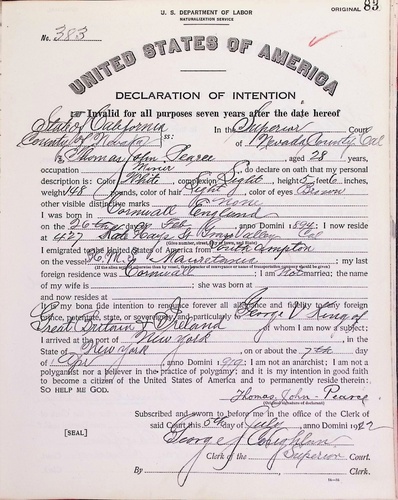 U. S. DEPARTMENT OF LABOR
NATURALIZATION SERVICE
ORIGINAL 83
No. 383
UNITED STATES OF AMERICA
DECLARATION OF INTENTION
Invalid for all purposes seven years after the date hereof
State of California
County of Nevada ss: In the Superior Court of Nevada County Cal
I, Thomas John Pearce, aged 28 years,
occupation Miner, do declare on oath that my personal
description is: Color White, complexion Light, height 5 feet 6 inches,
weight 148 pounds, color of hair Light, color of eyes Brown
other visible distinctive marks None
I was born in Cornwall England
on the 20th day of Feb, anno Domini 1894; I now reside
at 427 Kate Hayes St Grass Valley Cal
I emigrated to the United States of America from South Ampton
on the vessel H. M. S Mauretania; my last
foreign residence was Cornwall; I am Not married; the name
of my wife is; she was born at
and now resides at
It is my bona fide intention to renounce forever all allegiance and fidelity to any foreign
prince, potentate, state, or sovereignty, and particularly to George V King of
Great Britain & Ireland, of whom I am now a subject;
I arrived at the port of New York, in the
State of New York, on or about the 7th day
of Apr, anno Domini; I am not an anarchist; I am not a
polygamist nor a believer in the practice of polygamy; and it is my intention in good faith
to become a citizen of the United States of America and to permanently reside therein:
SO HELP ME GOD.
Thomas John Pearce
Subscribed and sworn to before me in the office of the Clerk of
said Court this 5th day of July, anno Domini 1922
[SEAL]
George J Coughlan
Clerk of the Superior Court.
By, Clerk.